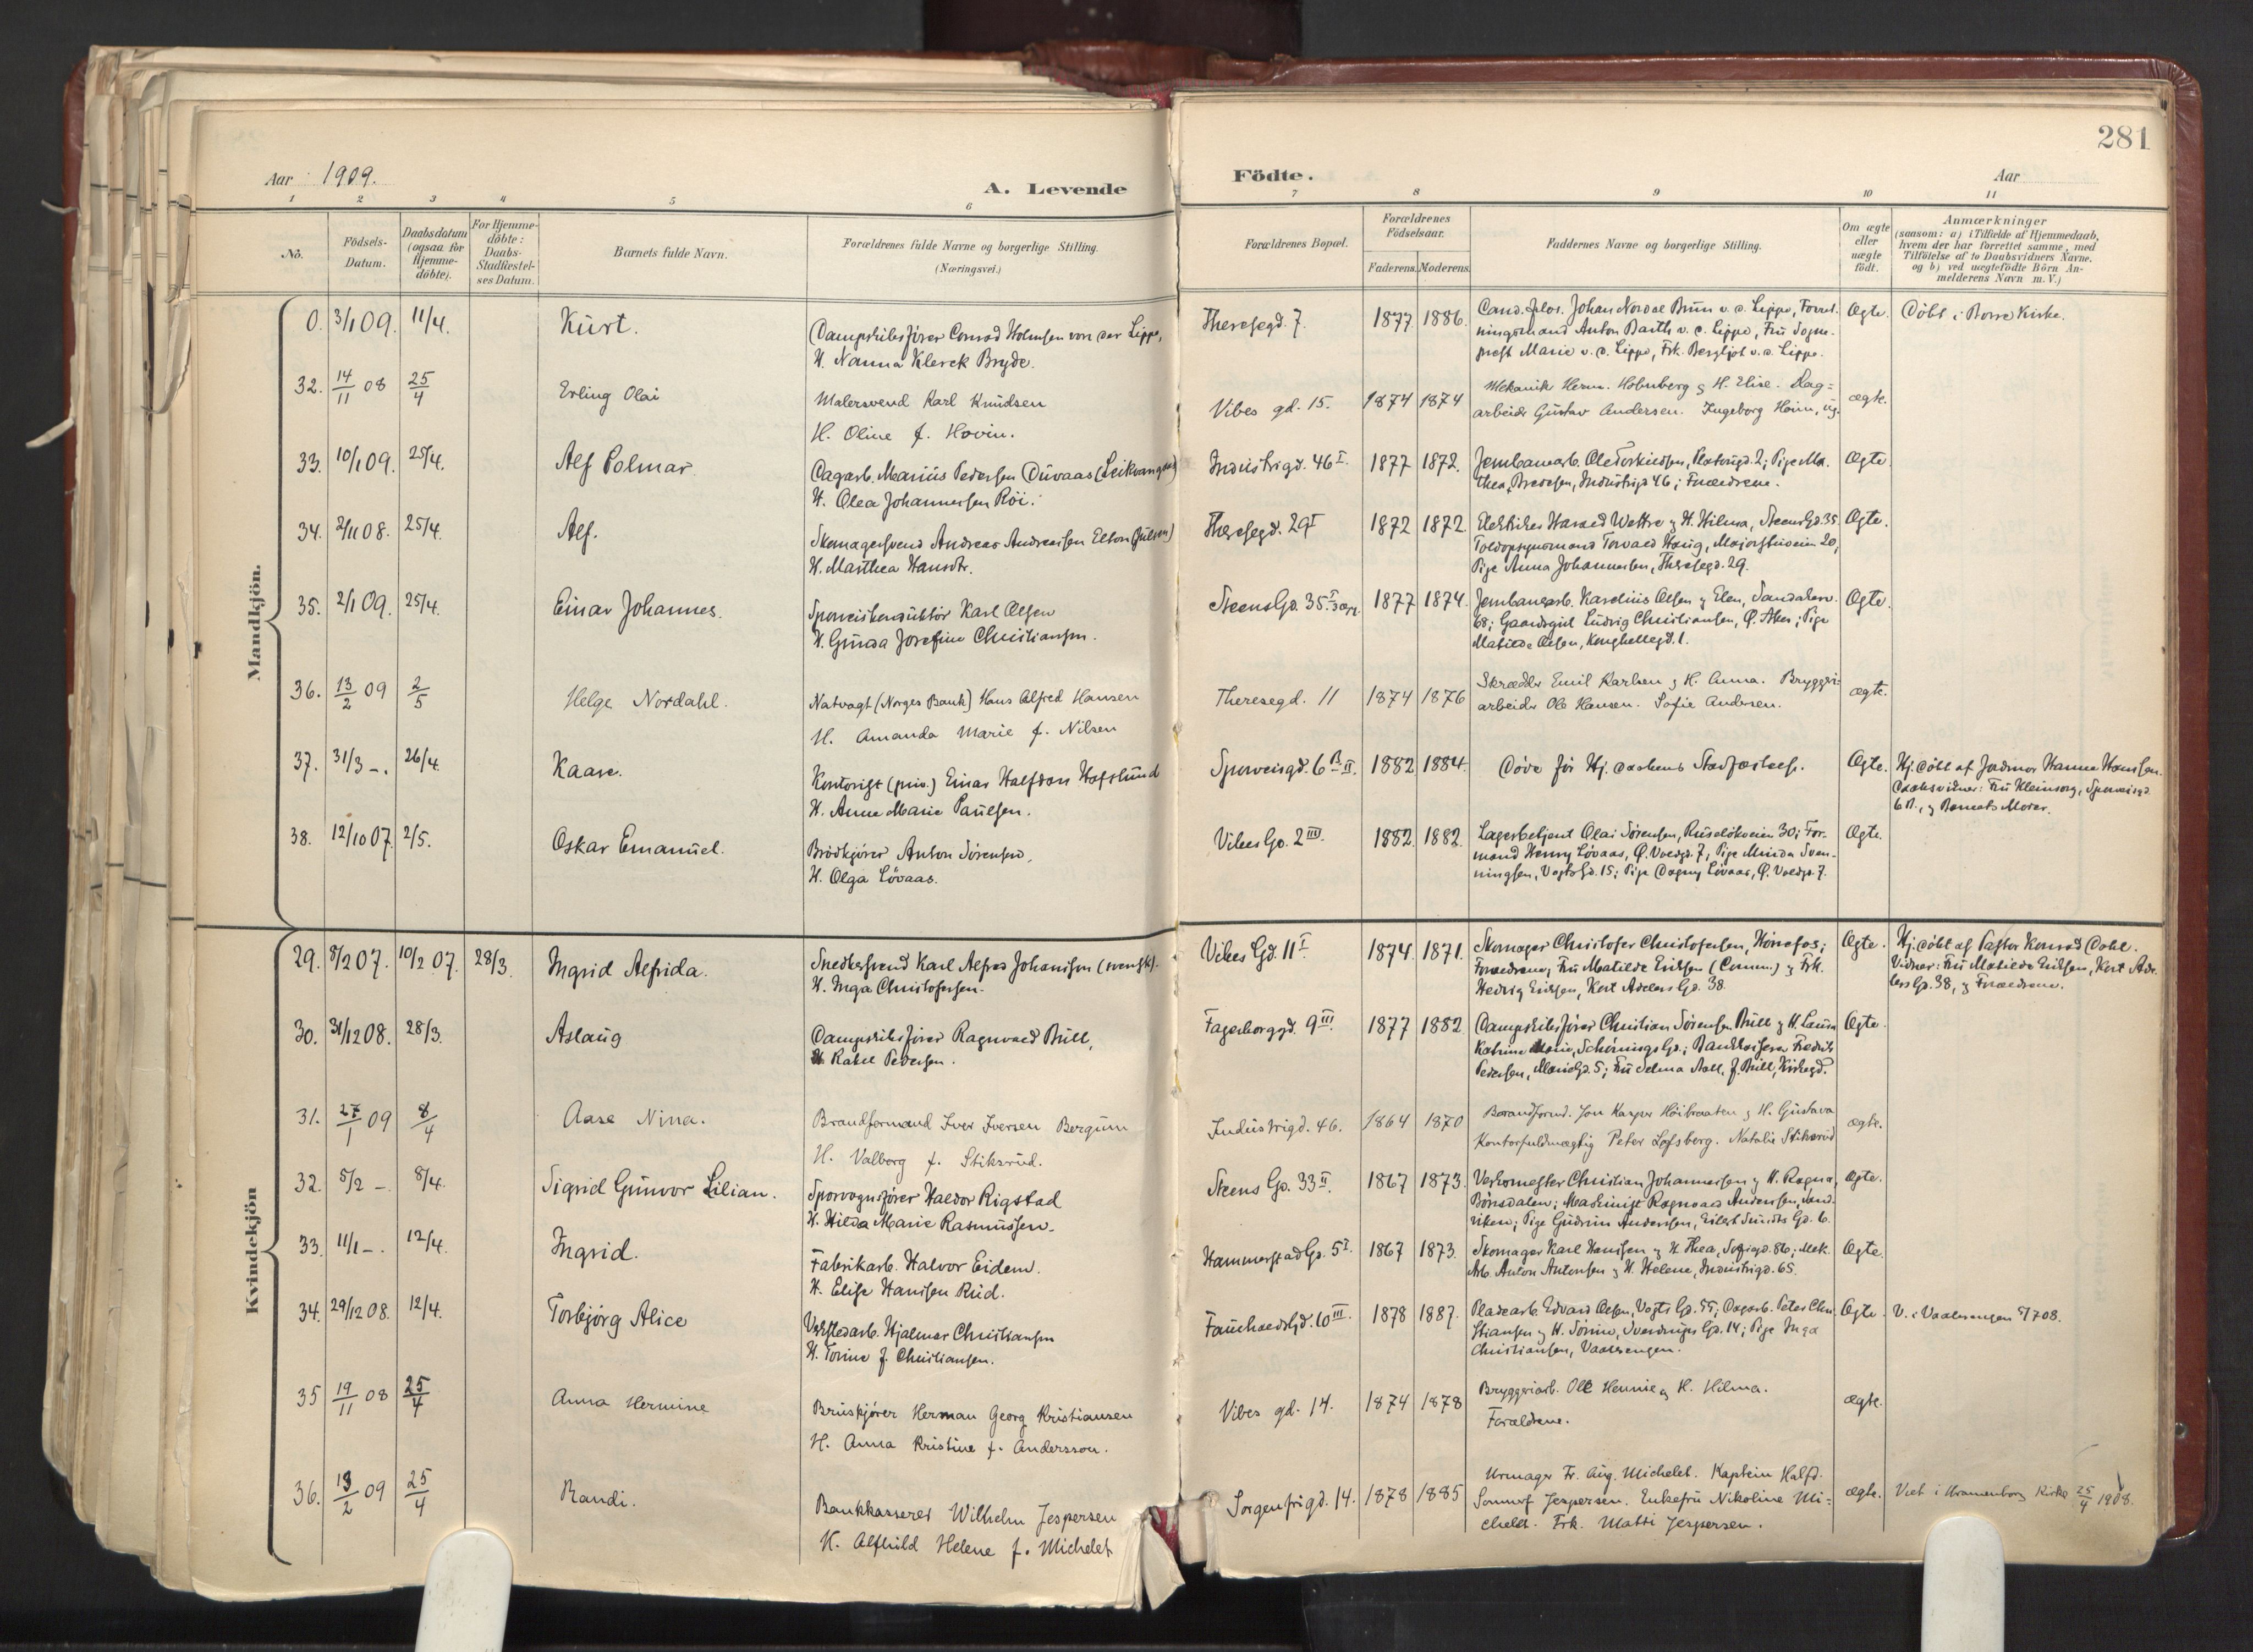 281
Aar 1909.
A. Levende
Födte.
Aar
1 2 3 4 5 6 7 8 9 10 11
No.
Födsels-
Datum.
Daabsdatum
(ogsaa for
Hjemme-
döbte).
For Hjemme-
döbte:
Daabs-
Stadfæstel-
ses Datum.
Barnets fulde Navn.
Forældrenes fulde Navne og borgerlige Stilling.
(Næringsvei.)
Forældrenes Bopæl.
Forældrenes
Födselsaar.
Faderens. Moderens.
Faddernes Navne og borgerlige Stilling.
Om ægte
eller
uægte
födt.
Anmærkninger
(saasom: a) i Tilfælde af Hjemmedaab,
hvem der har forrettet samme, med
Tilföielse af to Daabsvidners Navne.
og b) ved uægtefödte Börn An-
melderens Navn m. V.)
Mandkjön.
0. 3/1 09. 11/4. Kurt.
Dampskibsfører Conrad Holmsen von der Lippe,
H. Nanna Klerck Bryde.
Theresegd. 7. 1877 1886.
Cand. filos. Johan Nordal Brun v. d. Lippe, Forret-
ningsmand Anton Barth v. d. Lippe, Fru Sogne-
prest Marie v. d. Lippe, Frk. Bergljot v. d. Lippe.
Ægte. Döbt i Borre Kirke.
32. 14/11 08 25/4 Erling Olai
Malersvend Karl Knudsen
H. Oline f. Hovin.
Vibes gd. 15. 1874 1874
Mekanik Herm. Holmberg & H. Elise. Dag=
arbeider Gustav Andersen. Ingeborg Hovin, ug.
ægte.
33. 10/1 09. 25/4. Alf Polmar
Dagarb. Marius Pedersen Duvaas (Leikvangen)
H. Olea Johannesen Röi.
Industrigd. 46 I. 1877 1872.
Jernbanearb. Ole Torkildsen, 2; Pige Ma-
thea Bredesen, Industrigd 46; Forældrene.
Ægte.
34. 2/11 08. 25/4. Alf.
Skomagersvend Andreas Andreasen Elton
H. Marthea Hansdtr.
Theresegd. 29 I 1872 1872
Elektriker Harald Wettre & H. Hilma, Steens Gd. 35
Toldopsynsmand Torvald Haug, Majorstuveien 20,
Pige Anna Johannesen, Theresegd. 29.
Ægte.
35. 2/1 09. 25/4. Einar Johannes.
Sporveiskonduktör Karl Olsen
H. Gunda Josefine Christiansen.
Steens Gd. 35 I 1877 1874.
Jernbanearb. Karelius Olsen & Elen, Sandakerv.
68; Gaardsgut Ludvig Christiansen, Ö. Aker; Pige
Matilde Olsen, Konghellegd. 1.
Ægte.
36. 13/2 09 2/5 Helge Nordahl.
Natvagt (Norges Bank) Hans Alfred Hansen
H. Amanda Marie f. Nilsen
Theresegd. 11 1874 1876
Skrædder Emil Karlsen & H. Anna. Bryggeri-
arbeider Ole Hansen. Sofie Andersen.
ægte.
37. 31/3 -. 26/4. Kaare.
Kontorist (priv.) Einar Halfdan Hafslund
H. Anna Marie Paulsen.
Sporveisgd. 6 B II. 1882 1884.
Døde før Hj. daabens Stadfæstelse.
Ægte. Hj. döbt af Jordmor Hanna Hansen.
Daabsvidner: Fru Kleinsorg, Sporveisgd.
6 B., & Barnets Moder.
38. 12/10 07. 2/5. Oskar Emanuel.
Brödkjører Anton Sørensen,
H. Olga Lövaas.
Vibes Gd. 2 III. 1882. 1882.
Lagerbetjent Olai Sørensen, Ruseløkveien 30; For-
mand Henry Lövaas, Ö. Voldgd. 7; Pige Minda Sven-
ningsen, Vogts Gd. 15; Pige Dagny Lövaas, Ö. Voldgd. 7.
Ægte.
Kvindekjön
29. 8/2 07. 10/2 07. 28/3. Ingrid Alfrida.
Snedkersvend Karl Alfred Johansson (svensk).
H. Inga Christofersen.
Vibes Gd. 11 I 1874. 1871.
Skomager Christofer Christofersen, Hönefos;
Forældrene, Fru Matilde Eriksen (Comm.) & Frk.
Hedvig Eriksen, Kort Adelers Gd. 38
Ægte. Hj. döbt af Pastor Konrad Dahl.
Vidner: Fru Matilde Eriksen, Kort Ade-
lers Gd. 38, & Forældrene.
30. 31/12 08. 28/3. Aslaug
Dampskibsfører Ragnvald Bull,
H. Rakel Pedersen.
Fagerborggd. 9 III. 1877 1882
Dampskibsfører Christian Sørensen Bull & H. Laura
Katrine Marie, Schönings Gd.; Bankkasserer Fredrik
Pedersen, 5; Fru Selma Aall, f. Bull, Kirkegd.
Ægte.
31. 27/1 09 8/4 Aase Nina.
Brandformand Iver Iversen Bergum
H. Valborg f. Stiksrud.
Industrigd. 46. 1864 1870
Brandformd. Jon Kasper Höibraaten & H. Gustava
Kontorfuldmægtig Peter Lofsberg. Natalie Stiksrud
ægte.
32. 5/2 -. 8/4. Sigrid Gunvor Lilian.
Sporvognsfører Haldor Rigstad
H. Hilda Marie Rasmussen.
Steens Gd. 33 II. 1867 1873.
Verksmester Christian Johannesen & H. Ragna,
Börsdalen; Maskinist Ragnvald Andersen, Sand-
viken; Pige Gudrun Andersen, Eilert Sundts Gd. 6.
Ægte.
33. 11/1 -. 12/4. Ingrid.
Fabrikarb. Halvor Eidem.
H. Elise Hansen Rud.
Hammerstad Gd. 5 I. 1867 1873.
Skomager Karl Hansen & H. Thea, Sofigd. 86; Mek.
Arb. Anton Antonsen & H. Helene, Industrigd. 65.
Ægte.
34. 29/12 08. 12/4. Torbjörg Alice
Verkstedarb. Hjalmar Christiansen
H. Torine f. Christiansen.
Fauchalds Gd. 10 III. 1878 1887.
Pladearb. Edvard Olsen, Vogts Gd. 55; Dagarb. Peter Chri-
stiansen & H. Sörine, Sverdrups Gd. 14; Pige Inga
Christiansen, Vaalerengen.
Ægte. V. i Vaalerengen 708.
35 19/11 08 25/4 Anna Hermine
Bruskjører Herman Georg Kristiansen
H. Anna Kristine f. Andersson.
Vibes gd. 14. 1874 1878
Bryggeriarb. Ole Hennie & H. Hilma.
Forældrene.
ægte.
36. 13/2 09 25/4 Randi.
Bankkasserer Wilhelm Jespersen
H. Alfhild Helene f. Michelet
Sorgenfrigd. 14. 1878 1885
Urmager Fr. Aug. Michelet. Kaptein Halfd.
Jespersen. Enkefru Nikoline Mi=
chelet. Frk. Matti Jespersen.
ægte. Viet i Uranienborg Kirke 25/4 1908.